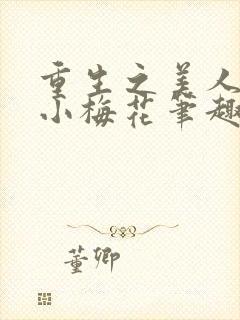 重生之美人
小梅花笔趣
董卿